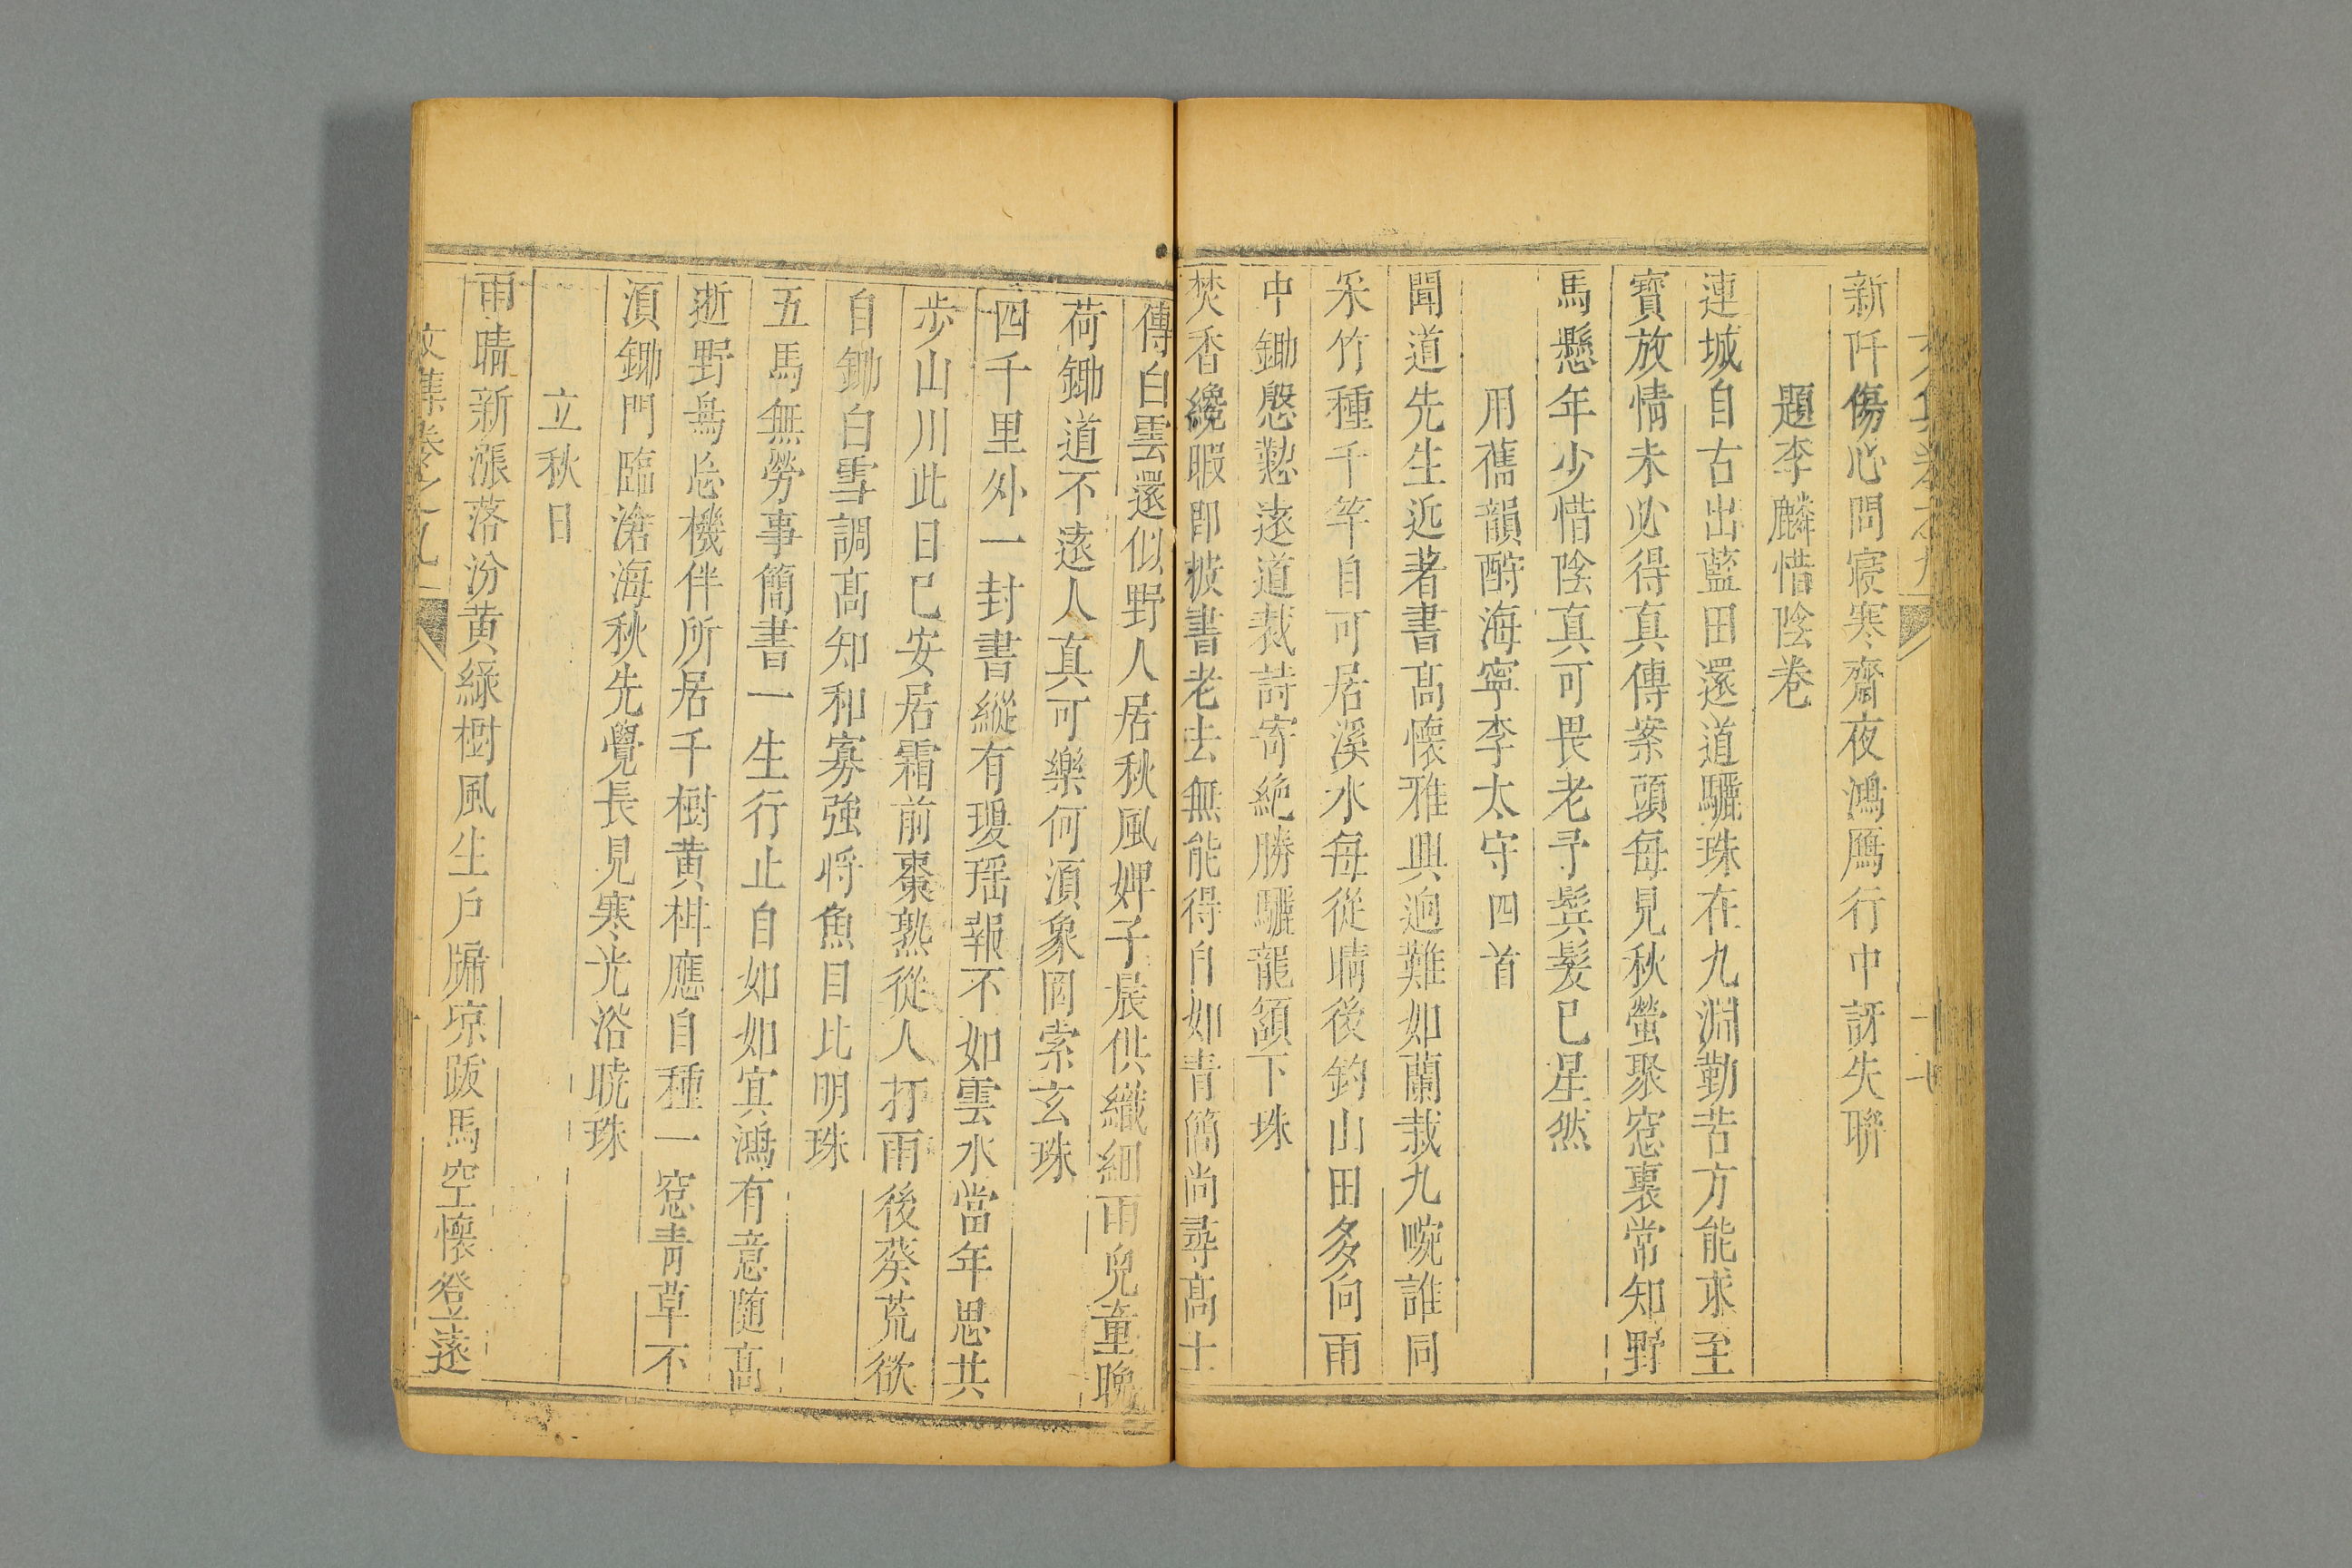 文集卷之九
新阡傷心問寢寒齋夜鴻鴈行中訝失聯
題李麟惜陰卷
連城自古出藍田還道驪珠在九淵勤苦方能求至
寶放情未必得真傳案頭每見秋螢聚窓裏常知野
馬懸年少惜陰真可畏老予鬂髮已星然
用舊韻酧海寧李太守四首
聞道先生近著書髙懷雅興逈難如蘭栽九畹誰同
采竹種千竿自可居溪水每從晴後釣山田多向雨
中鋤慇懃逺道裁詩寄絶勝驪龍頷下珠
焚香纔暇即披書老去無能得自如青簡尚尋髙士
傳白雲還似野人居秋風婢子晨供織細雨兒童晩
荷鋤道不逺人真可樂何湏象罔索玄珠
四千里外一封書縱有瓊瑶報不如雲水當年思共
歩山川此日已安居霜前棗熟從人打雨後葵荒欲
自鋤白雪調髙知和寡強将魚目比明珠
五馬無勞事簡書一生行止自如如㝠鴻有意随髙
逝野鳥忘機伴所居千樹黄柑應自種一窓青草不
湏鋤門臨滄海秋先覺長見寒光浴曉珠
立秋日
雨晴新漲落汾黄緑樹風生戶牖凉跋馬空懷登逺
文集卷之九